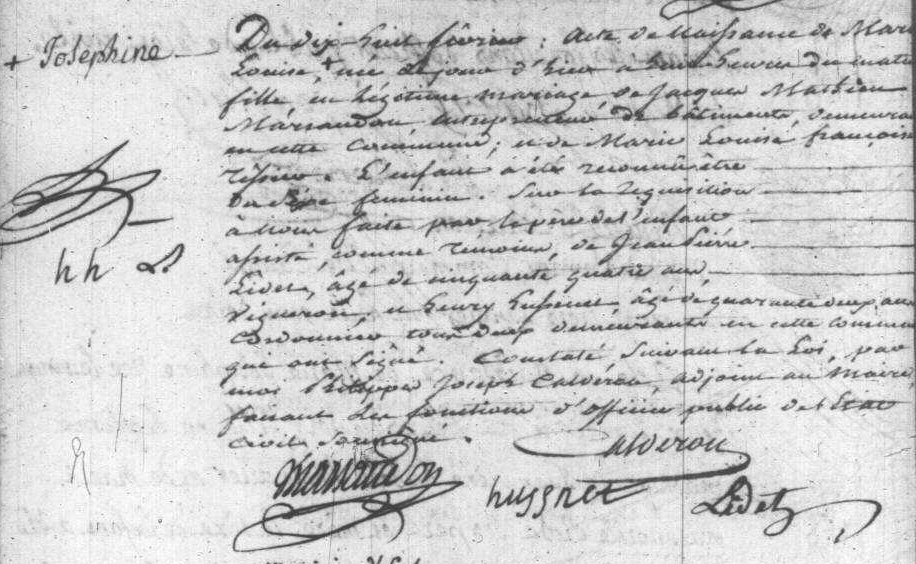 + Josephine
Du dix-huit février ; Acte de Naissance de Marie
Louise, + née le jour d'hier à heures du matin
fille, en légitime mariage de Jacques Mathieu
Marsaudon entrepreneur de bâtiments, demeurant
en cette commune ; et de Marie Louise françoise
. L'enfant a été reconnu être
du Sexe feminin. Sur la requisition
à Nous faite par le pere de l'enfant
assisté, comme temoins, de Jean Pierre
Lidet, âgé de cinquante quatre ans
vigneron, et henry hussenet, âgé de quarante deux ans
Cordonnier tous deux demeurants en cette commune
qui ont signé. Constaté suivant la Loi, par
moi Philippe Joseph Calderou, adjoint au Maire
faisant les fonctions d'officier public de l'Etat
civil soussigné.
hh
Calderou
hussnet
Lidet